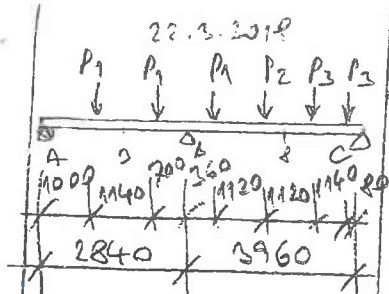 22.3.2018
P1 P1 P1 P2 P3 P3
A B C
1000 1140 700 360 1120 1120 1140 80
2840 3960